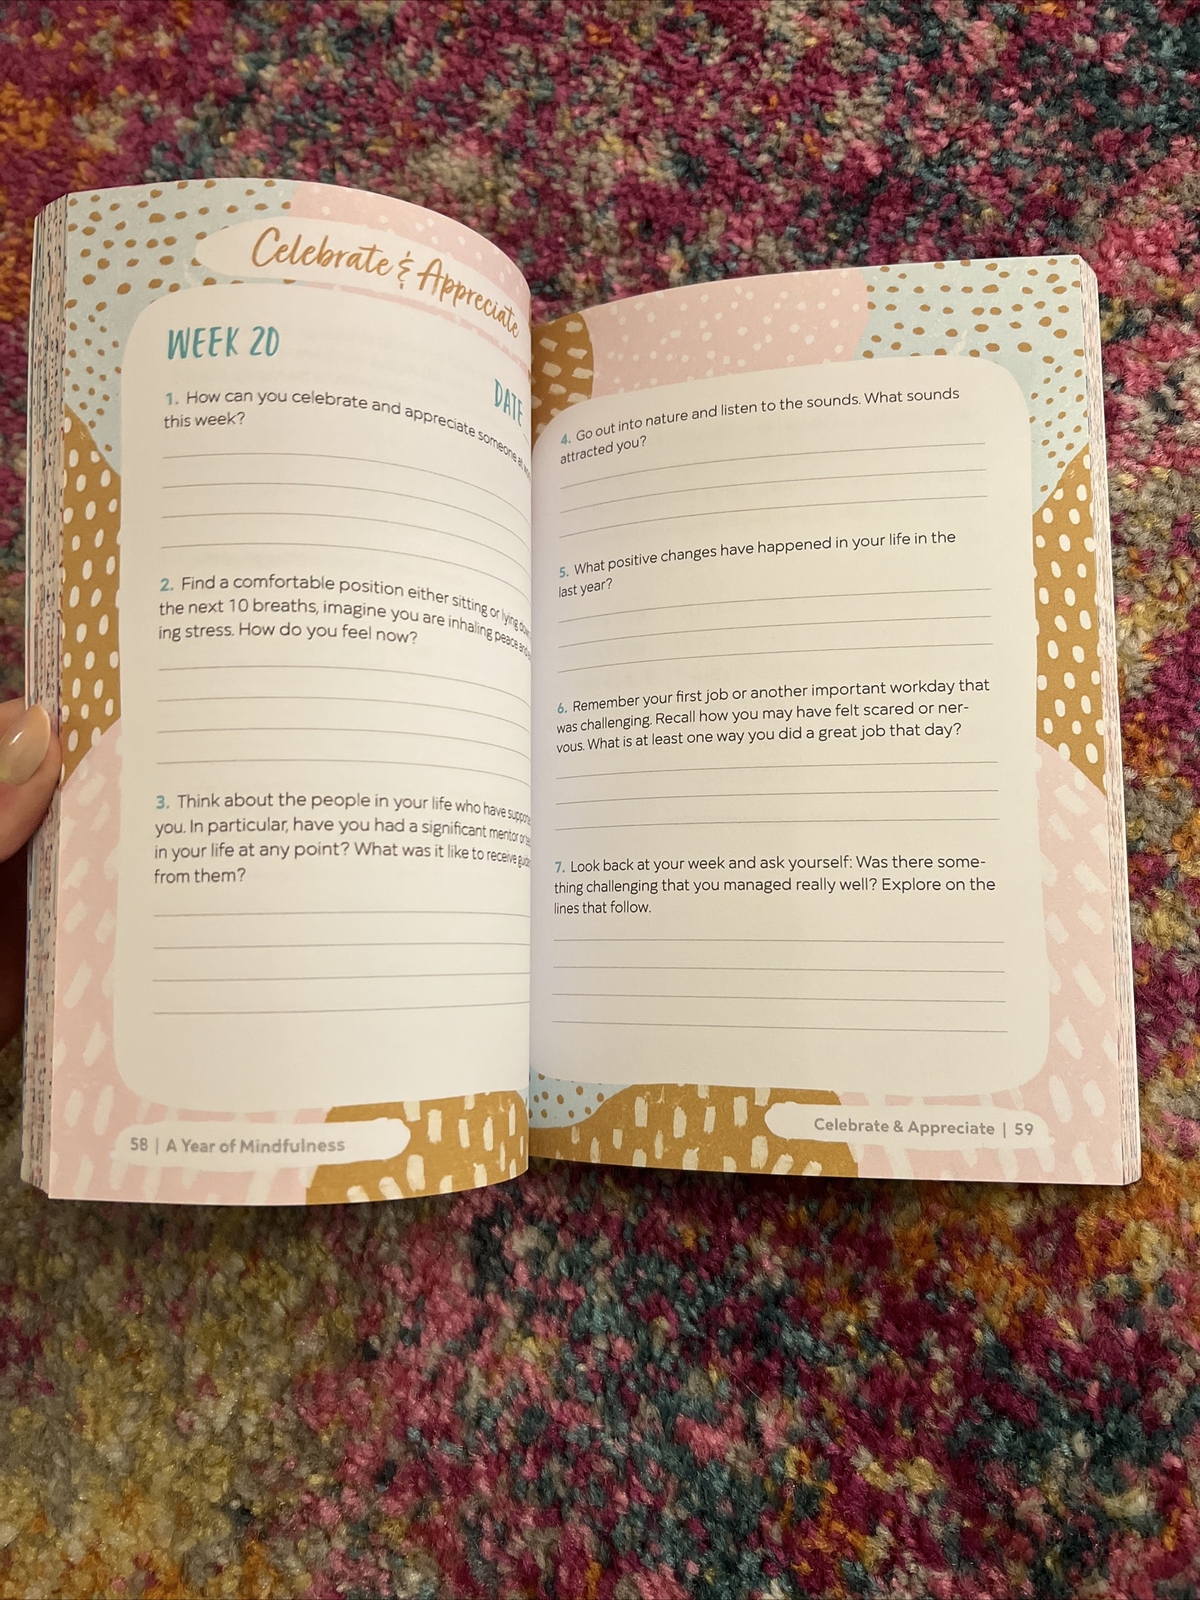 Celebrate & Appreciate
WEEK 20
DATE
1. How can you celebrate and appreciate someone at
this week?
2. Find a comfortable position either sitting or lying
the next 10 breaths, imagine you are inhaling peace and
ing stress. How do you feel now?
3. Think about the people in your life who have
you. In particular, have you had a significant mentor or
in your life at any point? What was it like to receive
from them?
58 | A Year of Mindfulness
4. Go out into nature and listen to the sounds. What sounds
attracted you?
5. What positive changes have happened in your life in the
last year?
6. Remember your first job or another important workday that
was challenging. Recall how you may have felt scared or ner-
vous. What is at least one way you did a great job that day?
7. Look back at your week and ask yourself: Was there some-
thing challenging that you managed really well? Explore on the
lines that follow.
Celebrate & Appreciate | 59